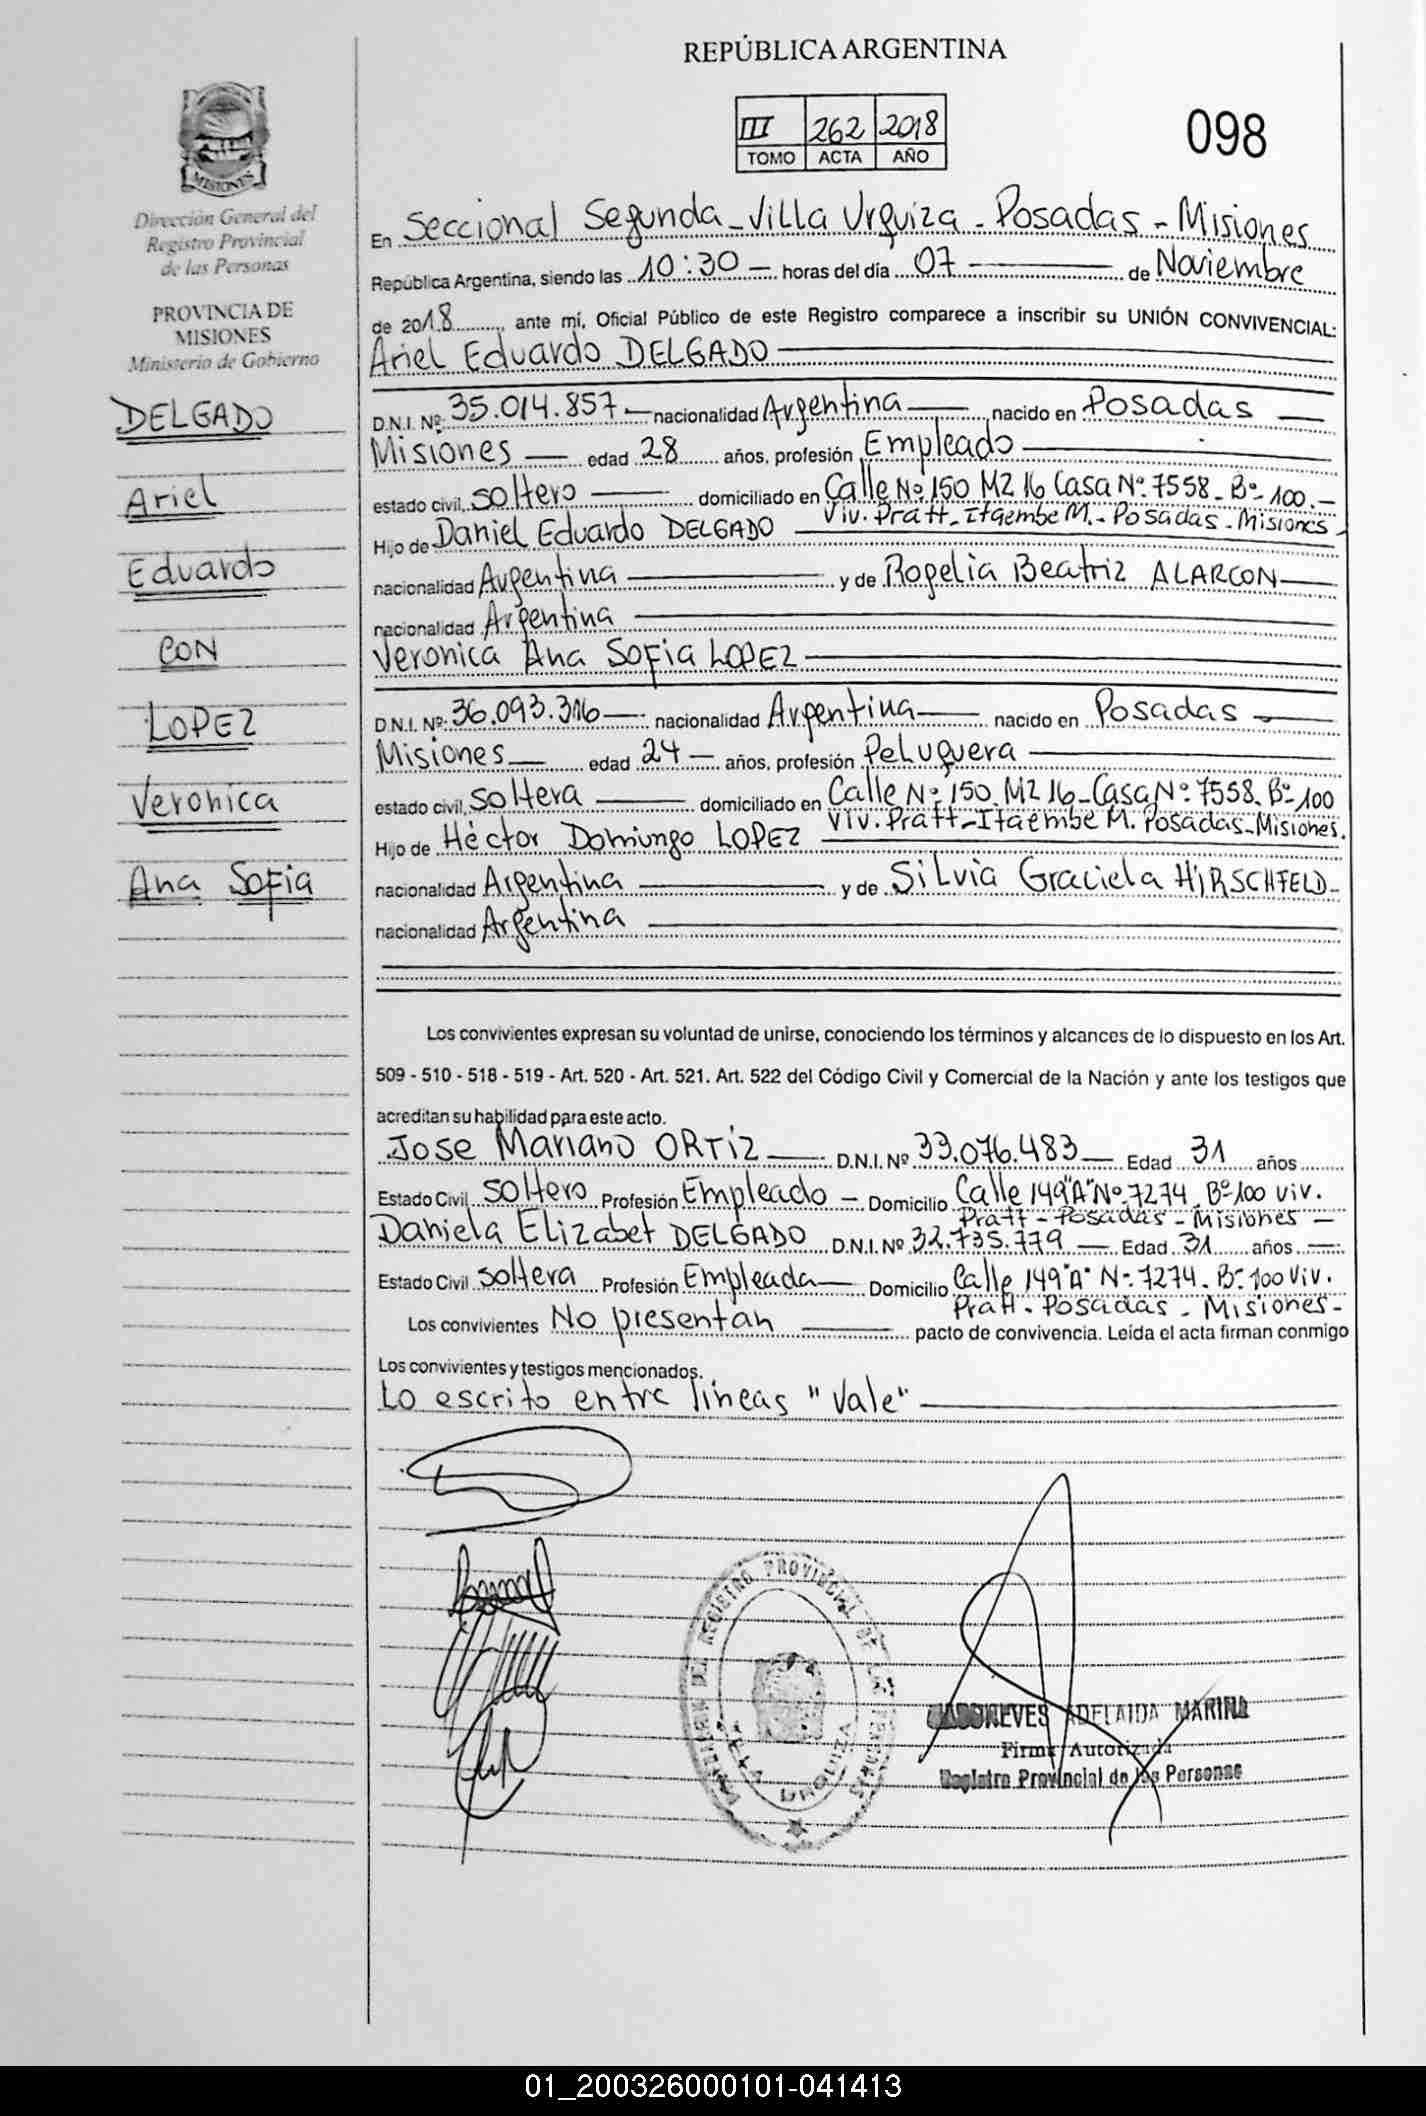 REPÚBLICA ARGENTINA
III 262 2018
TOMO ACTA AÑO
098
MISIONES
Dirección General del
Registro Provincial
de las Personas
PROVINCIA DE
MISIONES
Ministerio de Gobierno
DELGADO
Ariel
Eduardo
CON
LOPEZ
Veronica
Ana Sofia
En Seccional Segunda - Villa Urquiza - Posadas - Misiones
República Argentina, siendo las 10:30 — horas del día 07 — de Noviembre
de 2018, ante mí, Oficial Público de este Registro comparece a inscribir su UNIÓN CONVIVENCIAL:
Ariel Eduardo DELGADO
D.N.I. Nº 35.014.857 — nacionalidad Argentina — nacido en Posadas —
Misiones — edad 28 años, profesión Empleado
estado civil, soltero — domiciliado en Calle Nº 150 MZ 16 Casa Nº 7558 - Bº 100. -
Viv. Pratt - Itaembe M. - Posadas - Misiones -
Hijo de Daniel Eduardo DELGADO
nacionalidad Argentina — y de Rogelia Beatriz ALARCON —
nacionalidad Argentina
Veronica Ana Sofia LOPEZ
D.N.I. Nº 36.093.316 — nacionalidad Argentina — nacido en Posadas —
Misiones — edad 24 — años, profesión Peluquera
estado civil, soltera — domiciliado en Calle Nº 150 MZ 16 - Casa Nº 7558. Bº 100
Viv. Pratt - Itaembe M. Posadas - Misiones.
Hijo de Héctor Domiungo LOPEZ
nacionalidad Argentina — y de Silvia Graciela HIRSCHFELD -
nacionalidad Argentina
Los convivientes expresan su voluntad de unirse, conociendo los términos y alcances de lo dispuesto en los Art.
509 - 510 - 518 - 519 - Art. 520 - Art. 521. Art. 522 del Código Civil y Comercial de la Nación y ante los testigos que
acreditan su habilidad para este acto.
Jose Mariano ORTIZ — D.N.I. Nº 33.076.483 — Edad 31 años
Estado Civil soltero Profesión Empleado — Domicilio Calle 149 "A" Nº 7274 Bº 100 viv.
Pratt - Posadas - Misiones -
Daniela Elizabet DELGADO D.N.I. Nº 32.735.779 — Edad 31 años —
Estado Civil soltera Profesión Empleada — Domicilio Calle 149 "A" Nº 7274 - Bº 100 viv.
Pratt - Posadas - Misiones -
Los convivientes No presentan — pacto de convivencia. Leída el acta firman conmigo
Los convivientes y testigos mencionados.
Lo escrito entre líneas "Vale"
REGISTRO PROVINCIAL DE LAS PERSONAS
ADELAIDA MARINA
Firma Autorizada
Registro Provincial de las Personas
01_200326000101-041413